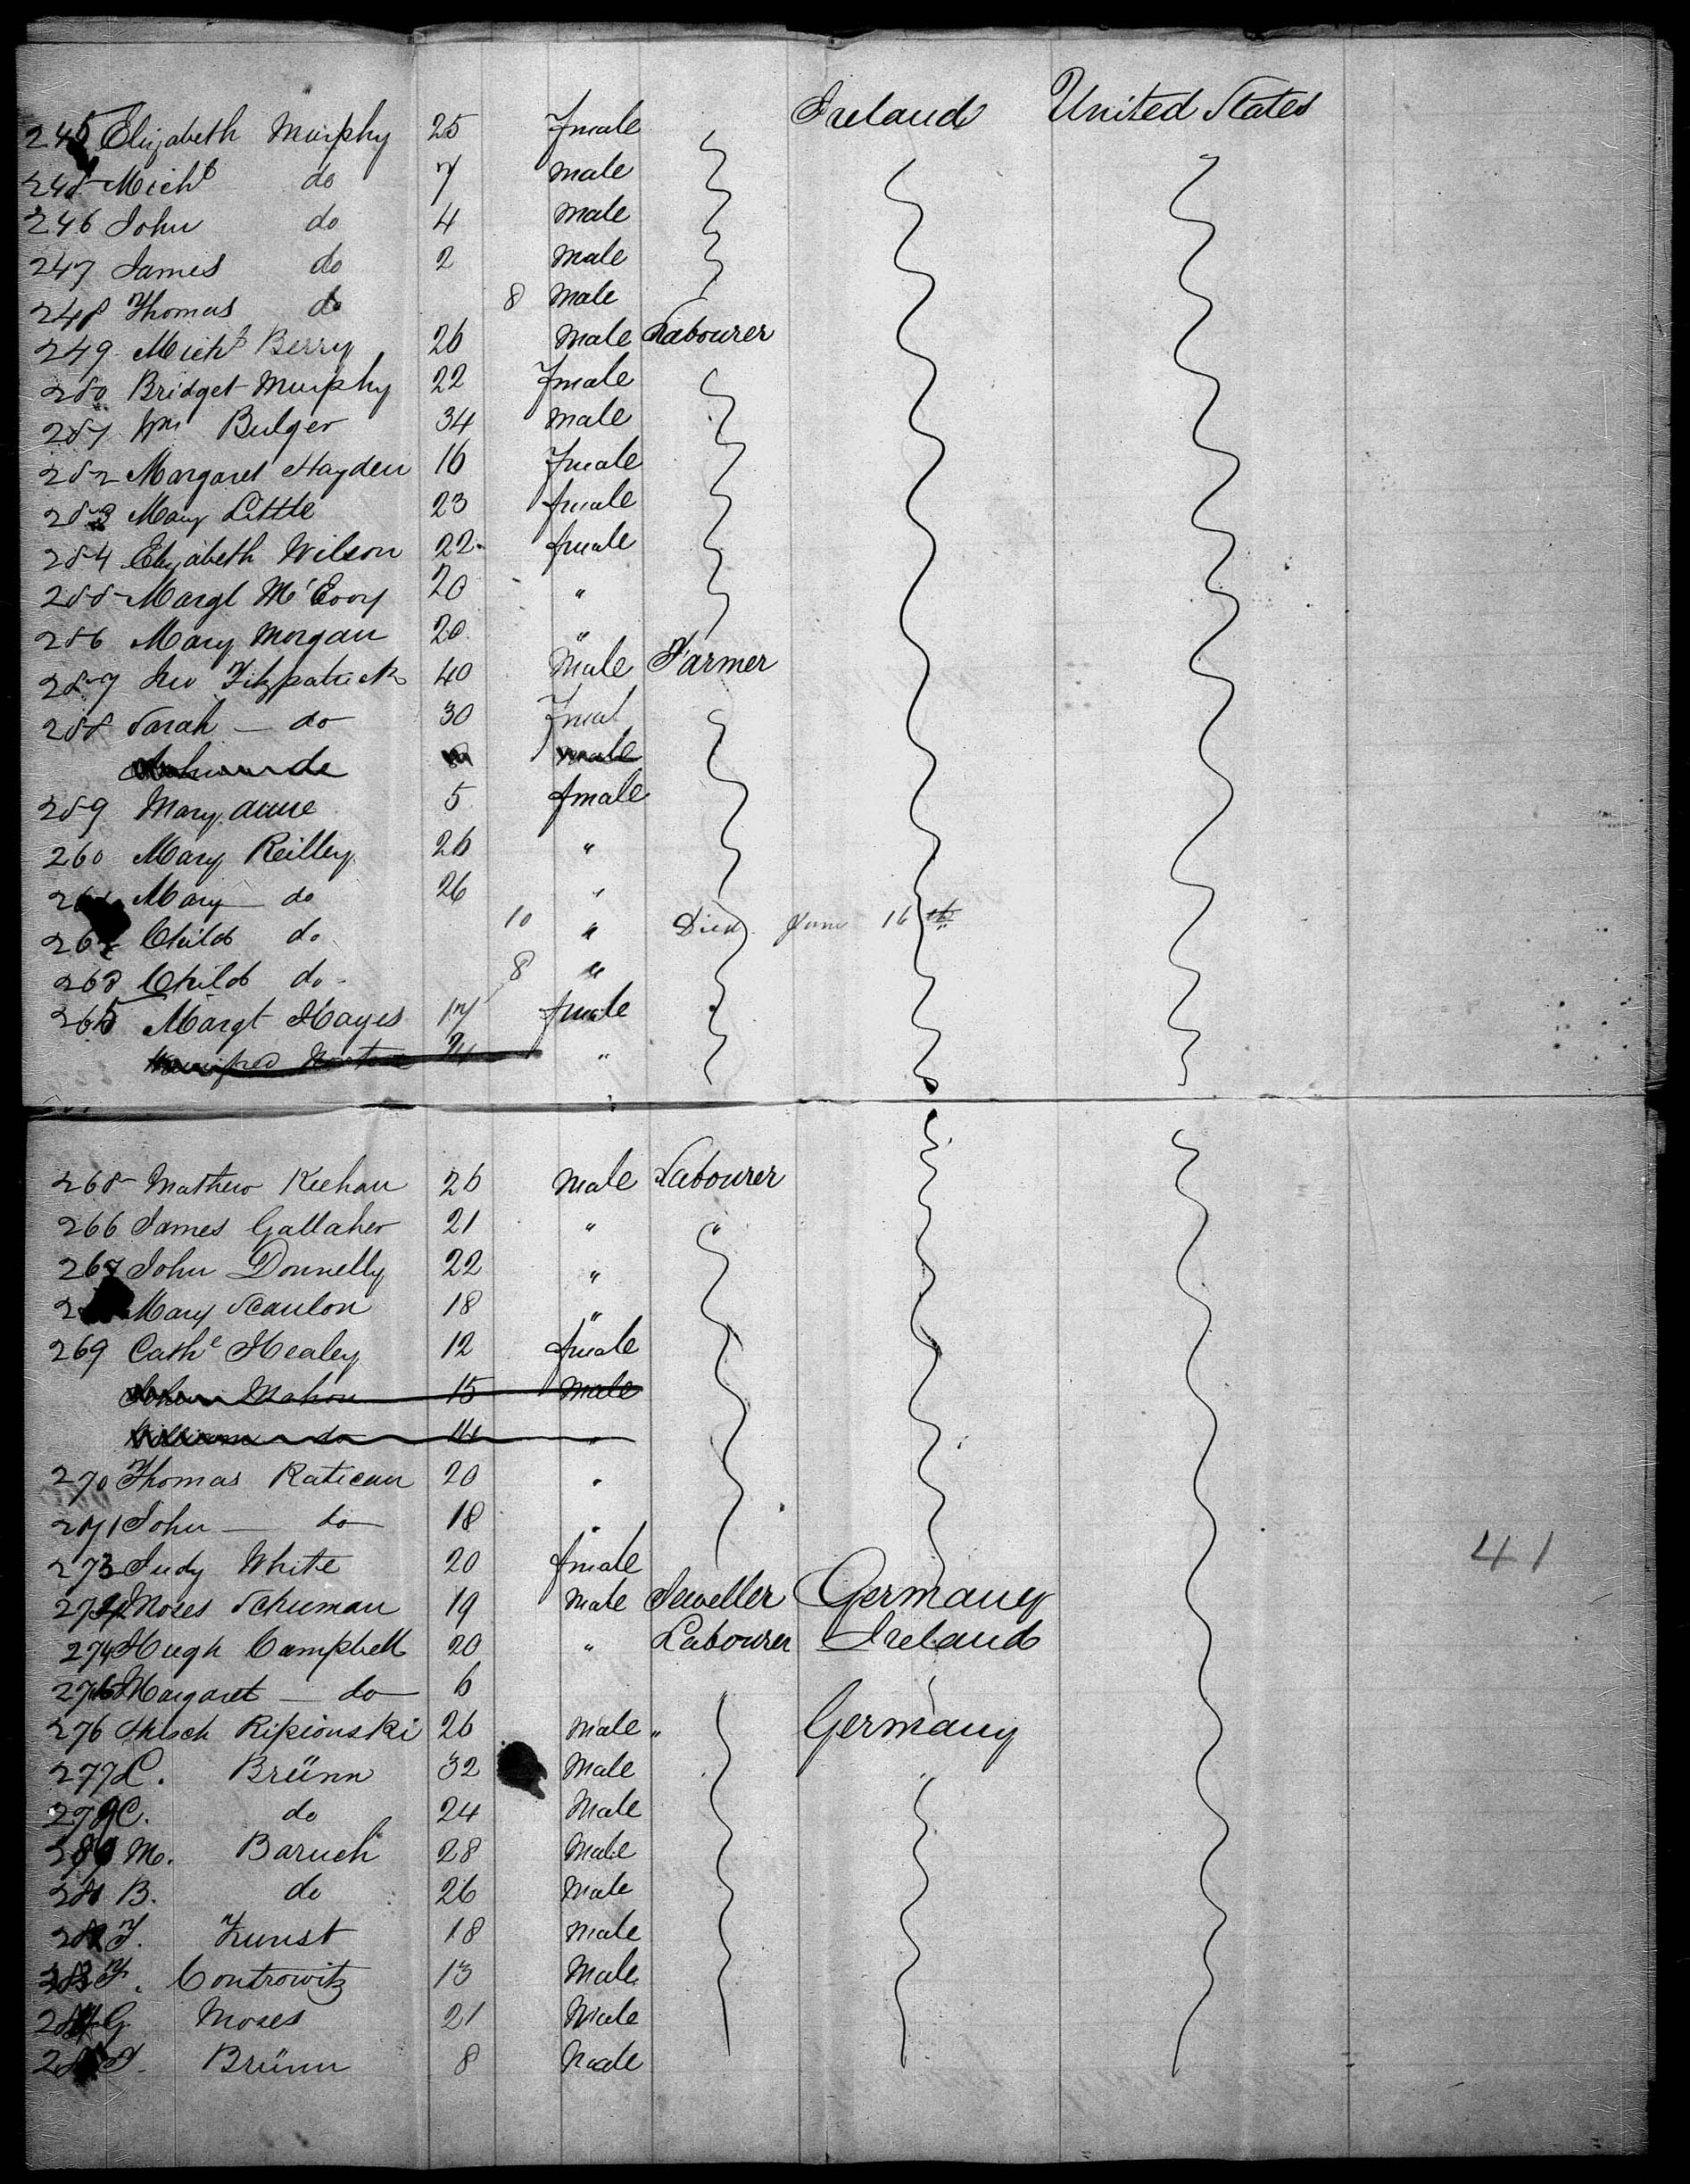 Ireland United States
245 Elizabeth Murphy 25 Fmale
245 Michl do 7 male
246 John do 4 male
247 James do 2 male
248 Thomas do 8 male
249 Michl Berry 26 male Labourer
250 Bridget Murphy 22 Fmale
251 Wm Bulger 34 male
252 Margaret Hayden 16 Fmale
253 Mary Little 23 fmale
254 Elizabeth Wilson 22 fmale
255 Margt McEvoy 20 "
256 Mary Morgan 20 "
257 Jno Fitzpatrick 40 Male Farmer
258 Sarah — do 30 Fmal
do male
259 Mary anne 5 fmale
260 Mary Reilley 26 "
261 Mary do 26 "
262 Child do 10 " Died June 16th
263 Child do 8 "
265 Margt Hayes 17 fmale
"
265 Mathew Keehan 26 male Labourer
266 James Gallaher 21 " "
267 John Donnelly 22 "
Mary Scanlon 18 "
269 Cathe Healey 12 fmale
John Mahon 15 male
William do 14 "
270 Thomas Ratican 20 "
271 John — do 18 "
273 Judy White 20 fmale
Moses Schuman 19 male Jeweller Germany
274 Hugh Campbell 20 " Labourer Ireland
275 Margaret — do 6 "
276 Hisch Ripionski 26 male " Germany
277 L. Brünn 32 male
C. do 24 male
M. Baruch 28 male
281 B. do 26 male
282 F. Kunst 18 male
283 F. Controwitz 13 male
284 G Moses 21 male
Brünn 8 male
41